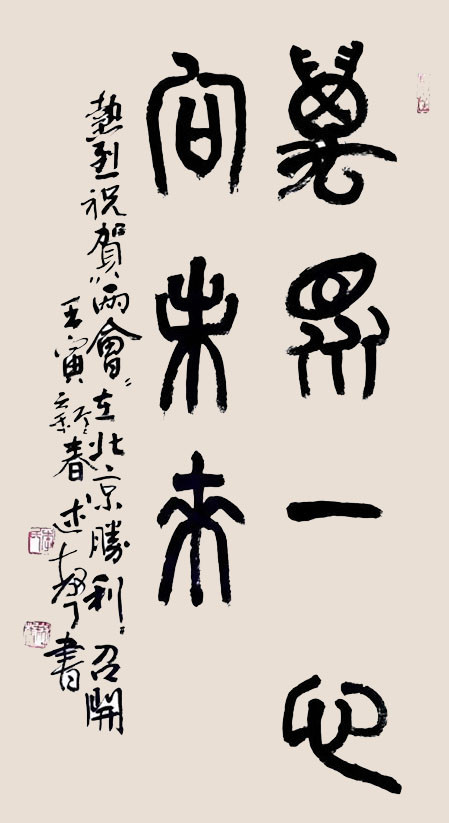 萬眾一心
向未來
熱烈祝賀"兩會"在北京勝利召開
壬寅新春述書